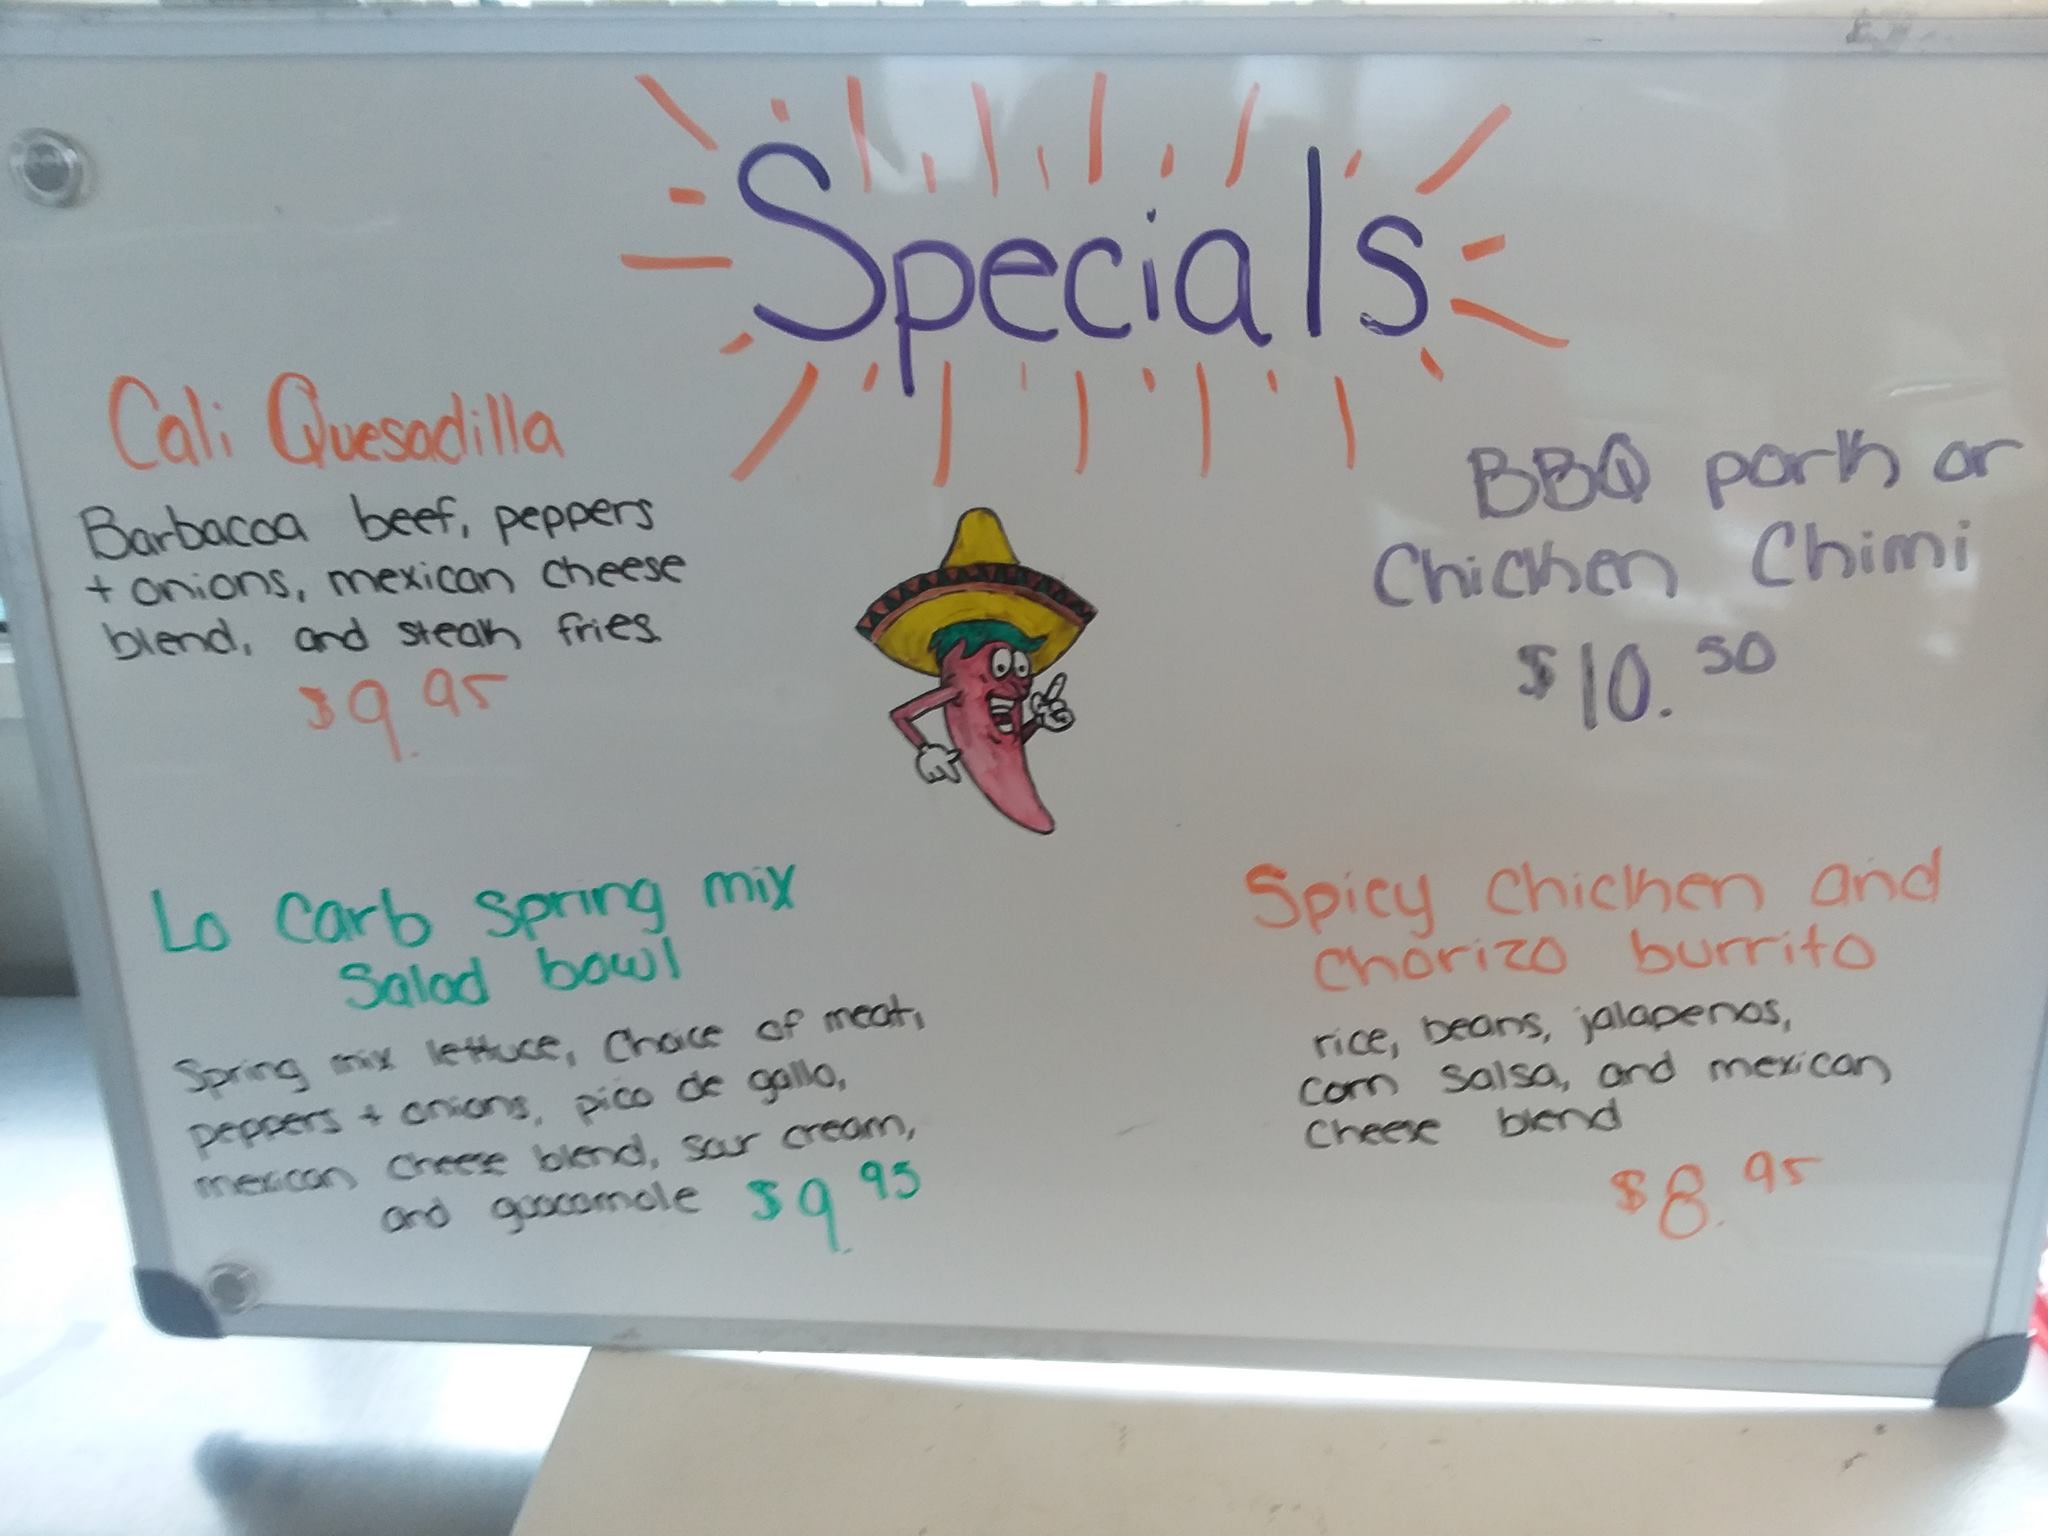 Specials
Cali Quesadilla
Barbacoa beef, peppers
+ onions, mexican cheese
blend, and steak fries
$9.95
BBQ pork or
Chicken Chimi
$10.50
Lo Carb Spring mix
Salad bowl
Spring mix lettuce, Choice of meat,
peppers + onions, pico de gallo,
mexican cheese blend, sour cream,
and guacamole $9.95
Spicy Chicken and
Chorizo burrito
rice, beans, jalapenos,
corn salsa, and mexican
cheese blend
$8.95